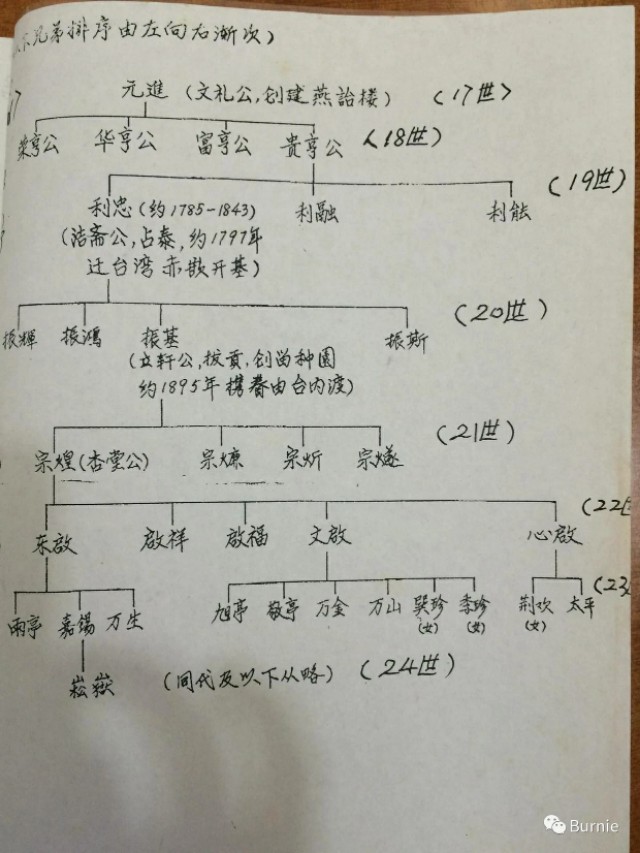 兄弟排序由左向右渐次)
元進 (文礼公,创建燕詒楼) (17世)
荣亨公 华亨公 富亨公 贵亨公 (18世)
(19世)
利忠(约1785-1843) 利融 利能
(洁斋公,占泰,约1797年
迁台湾赤嵌开基)
(20世)
振輝 振鴻 振基 振斯
(立轩公,拔贡,创苗种園
约1895年携眷由台内渡)
(21世)
宗煌(杏堂公) 宗炘
(22世
东啟 啟祥 啟福 文啟 心啟
(23
雨亭 嘉锡 万生 旭亭 敬亭 万金 万山 巽珍 季珍 荆欢 太平
(女) (女) (女)
崧嶽 (同代及以下从略) (24世)
Burnie